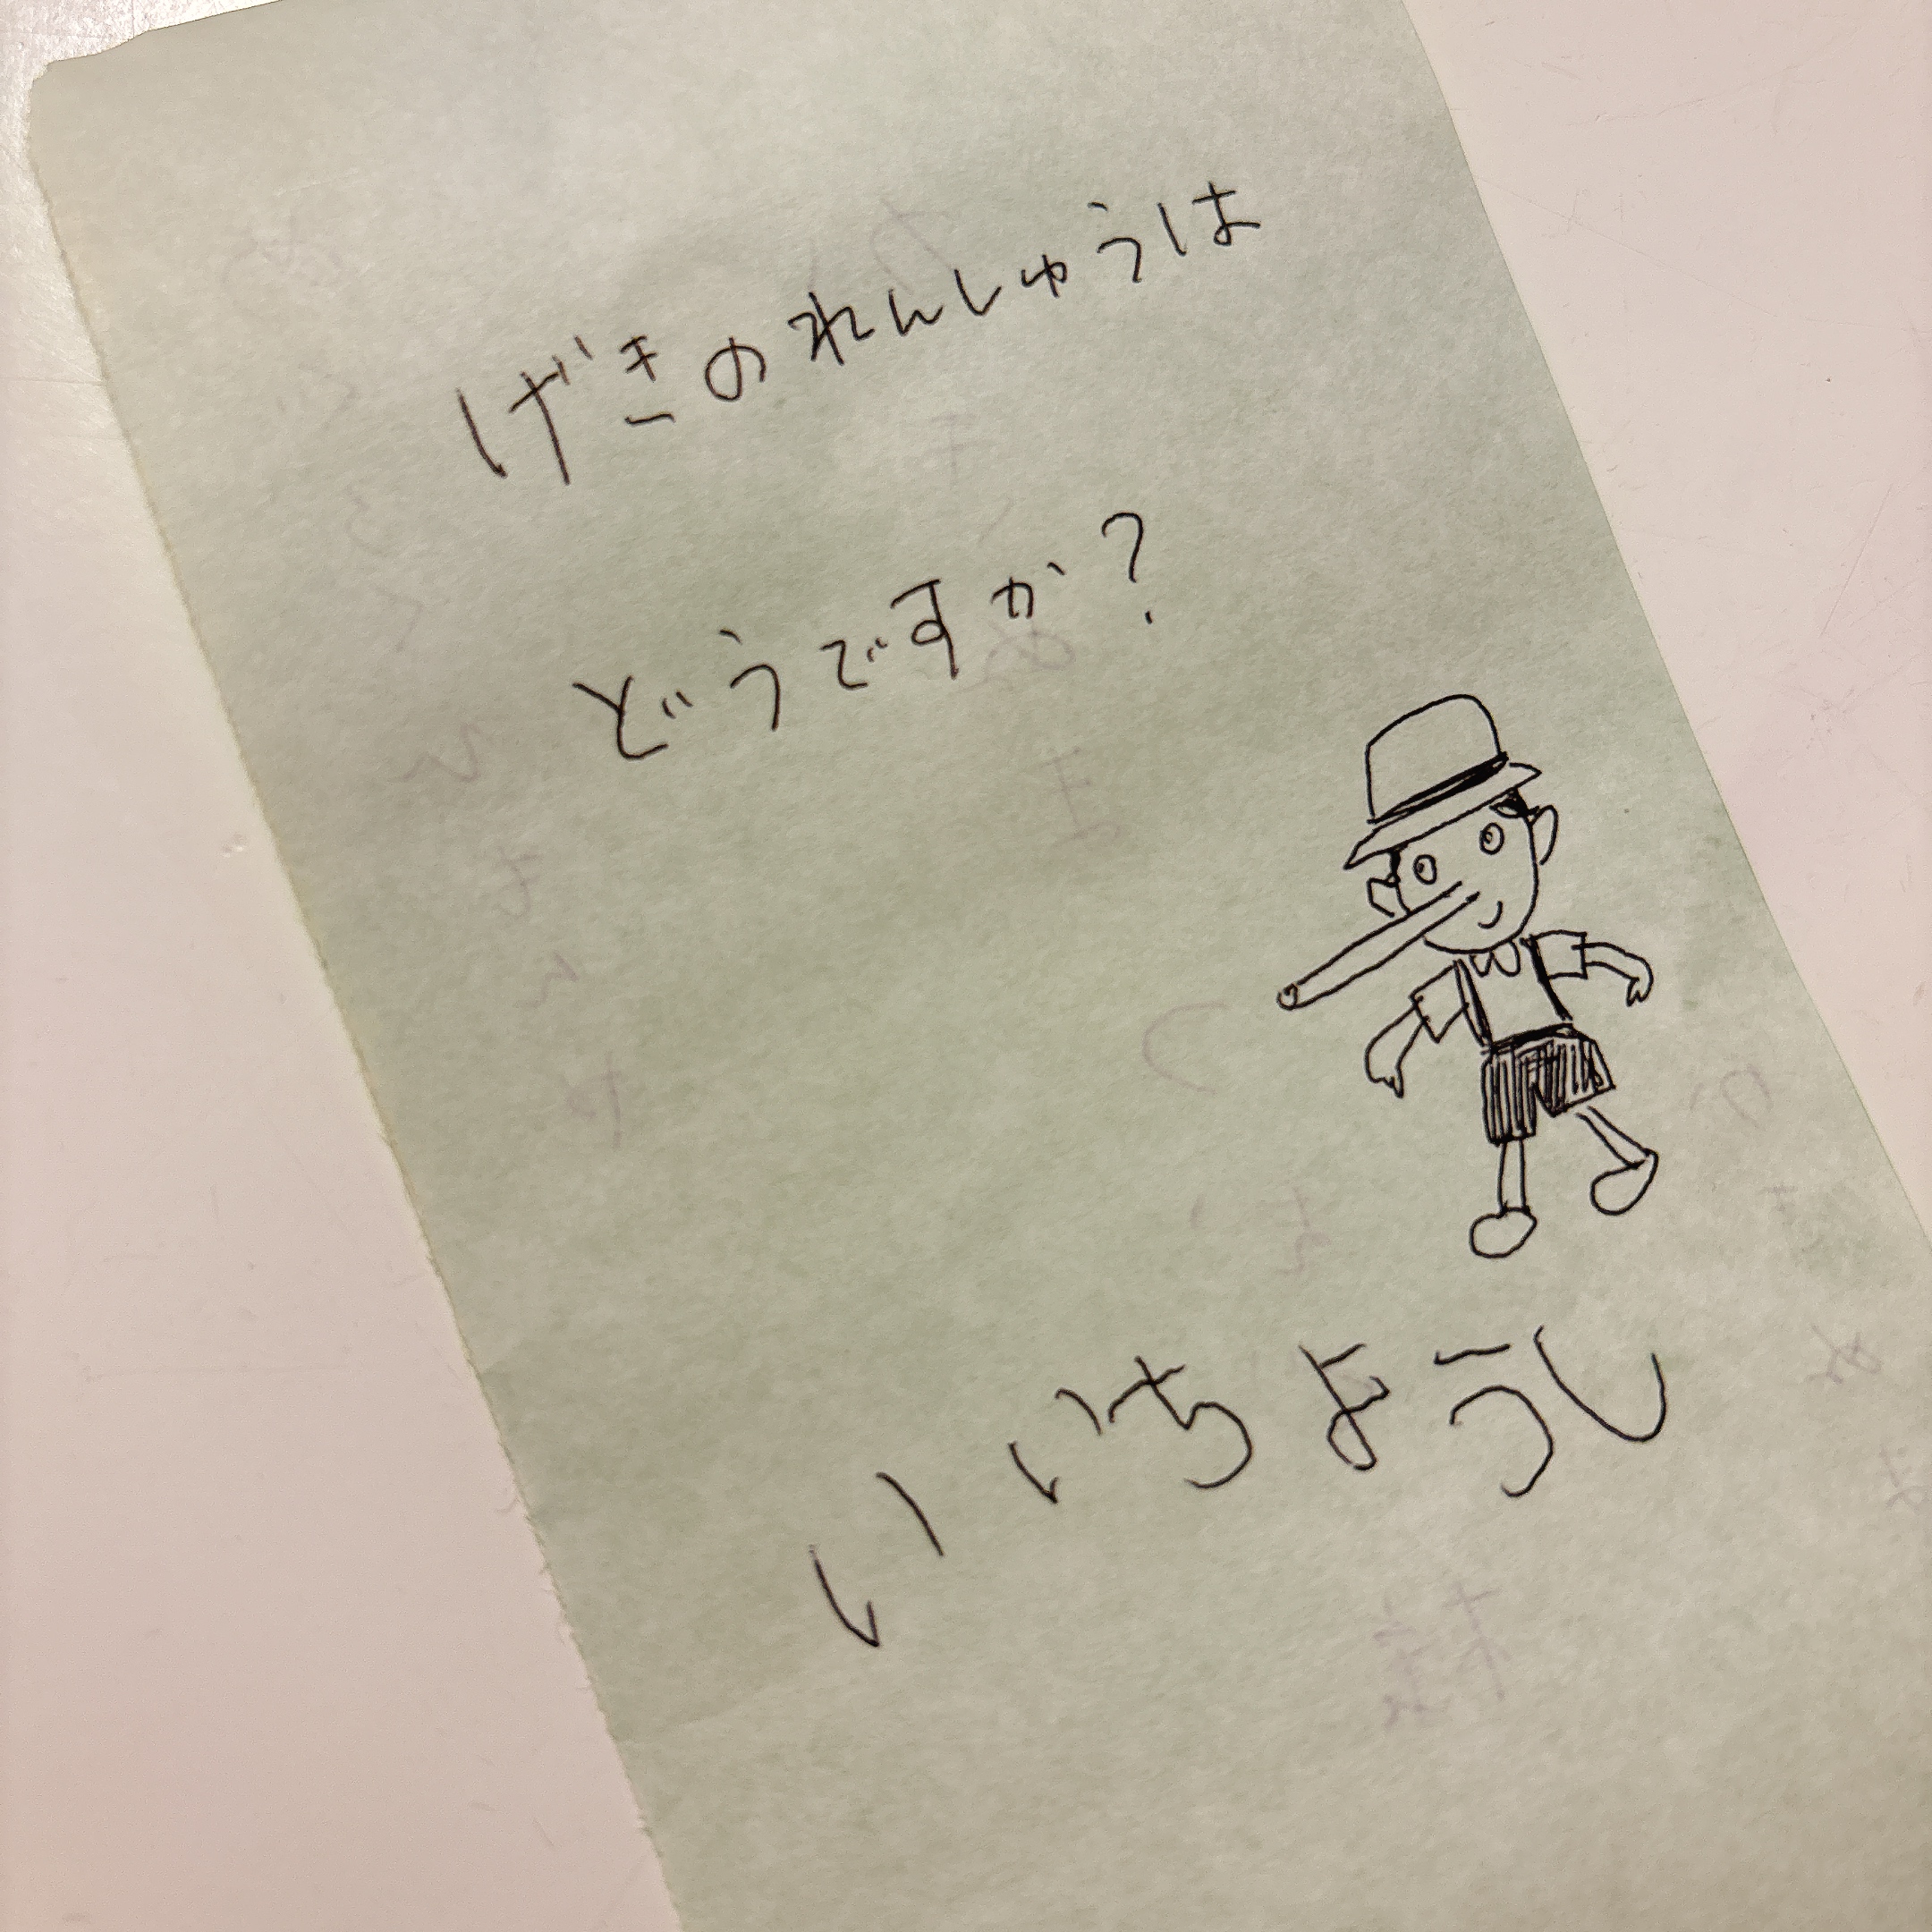 げきのれんしゅうは
どうですか?
いいちょうし